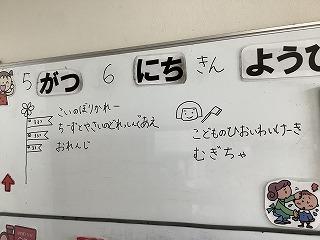 5 がつ 6 にち きん ようび
こいのぼりかれー
ちーずとやさいのどれっしんぐあえ
おれんじ
こどものひおいわいけーき
むぎちゃ